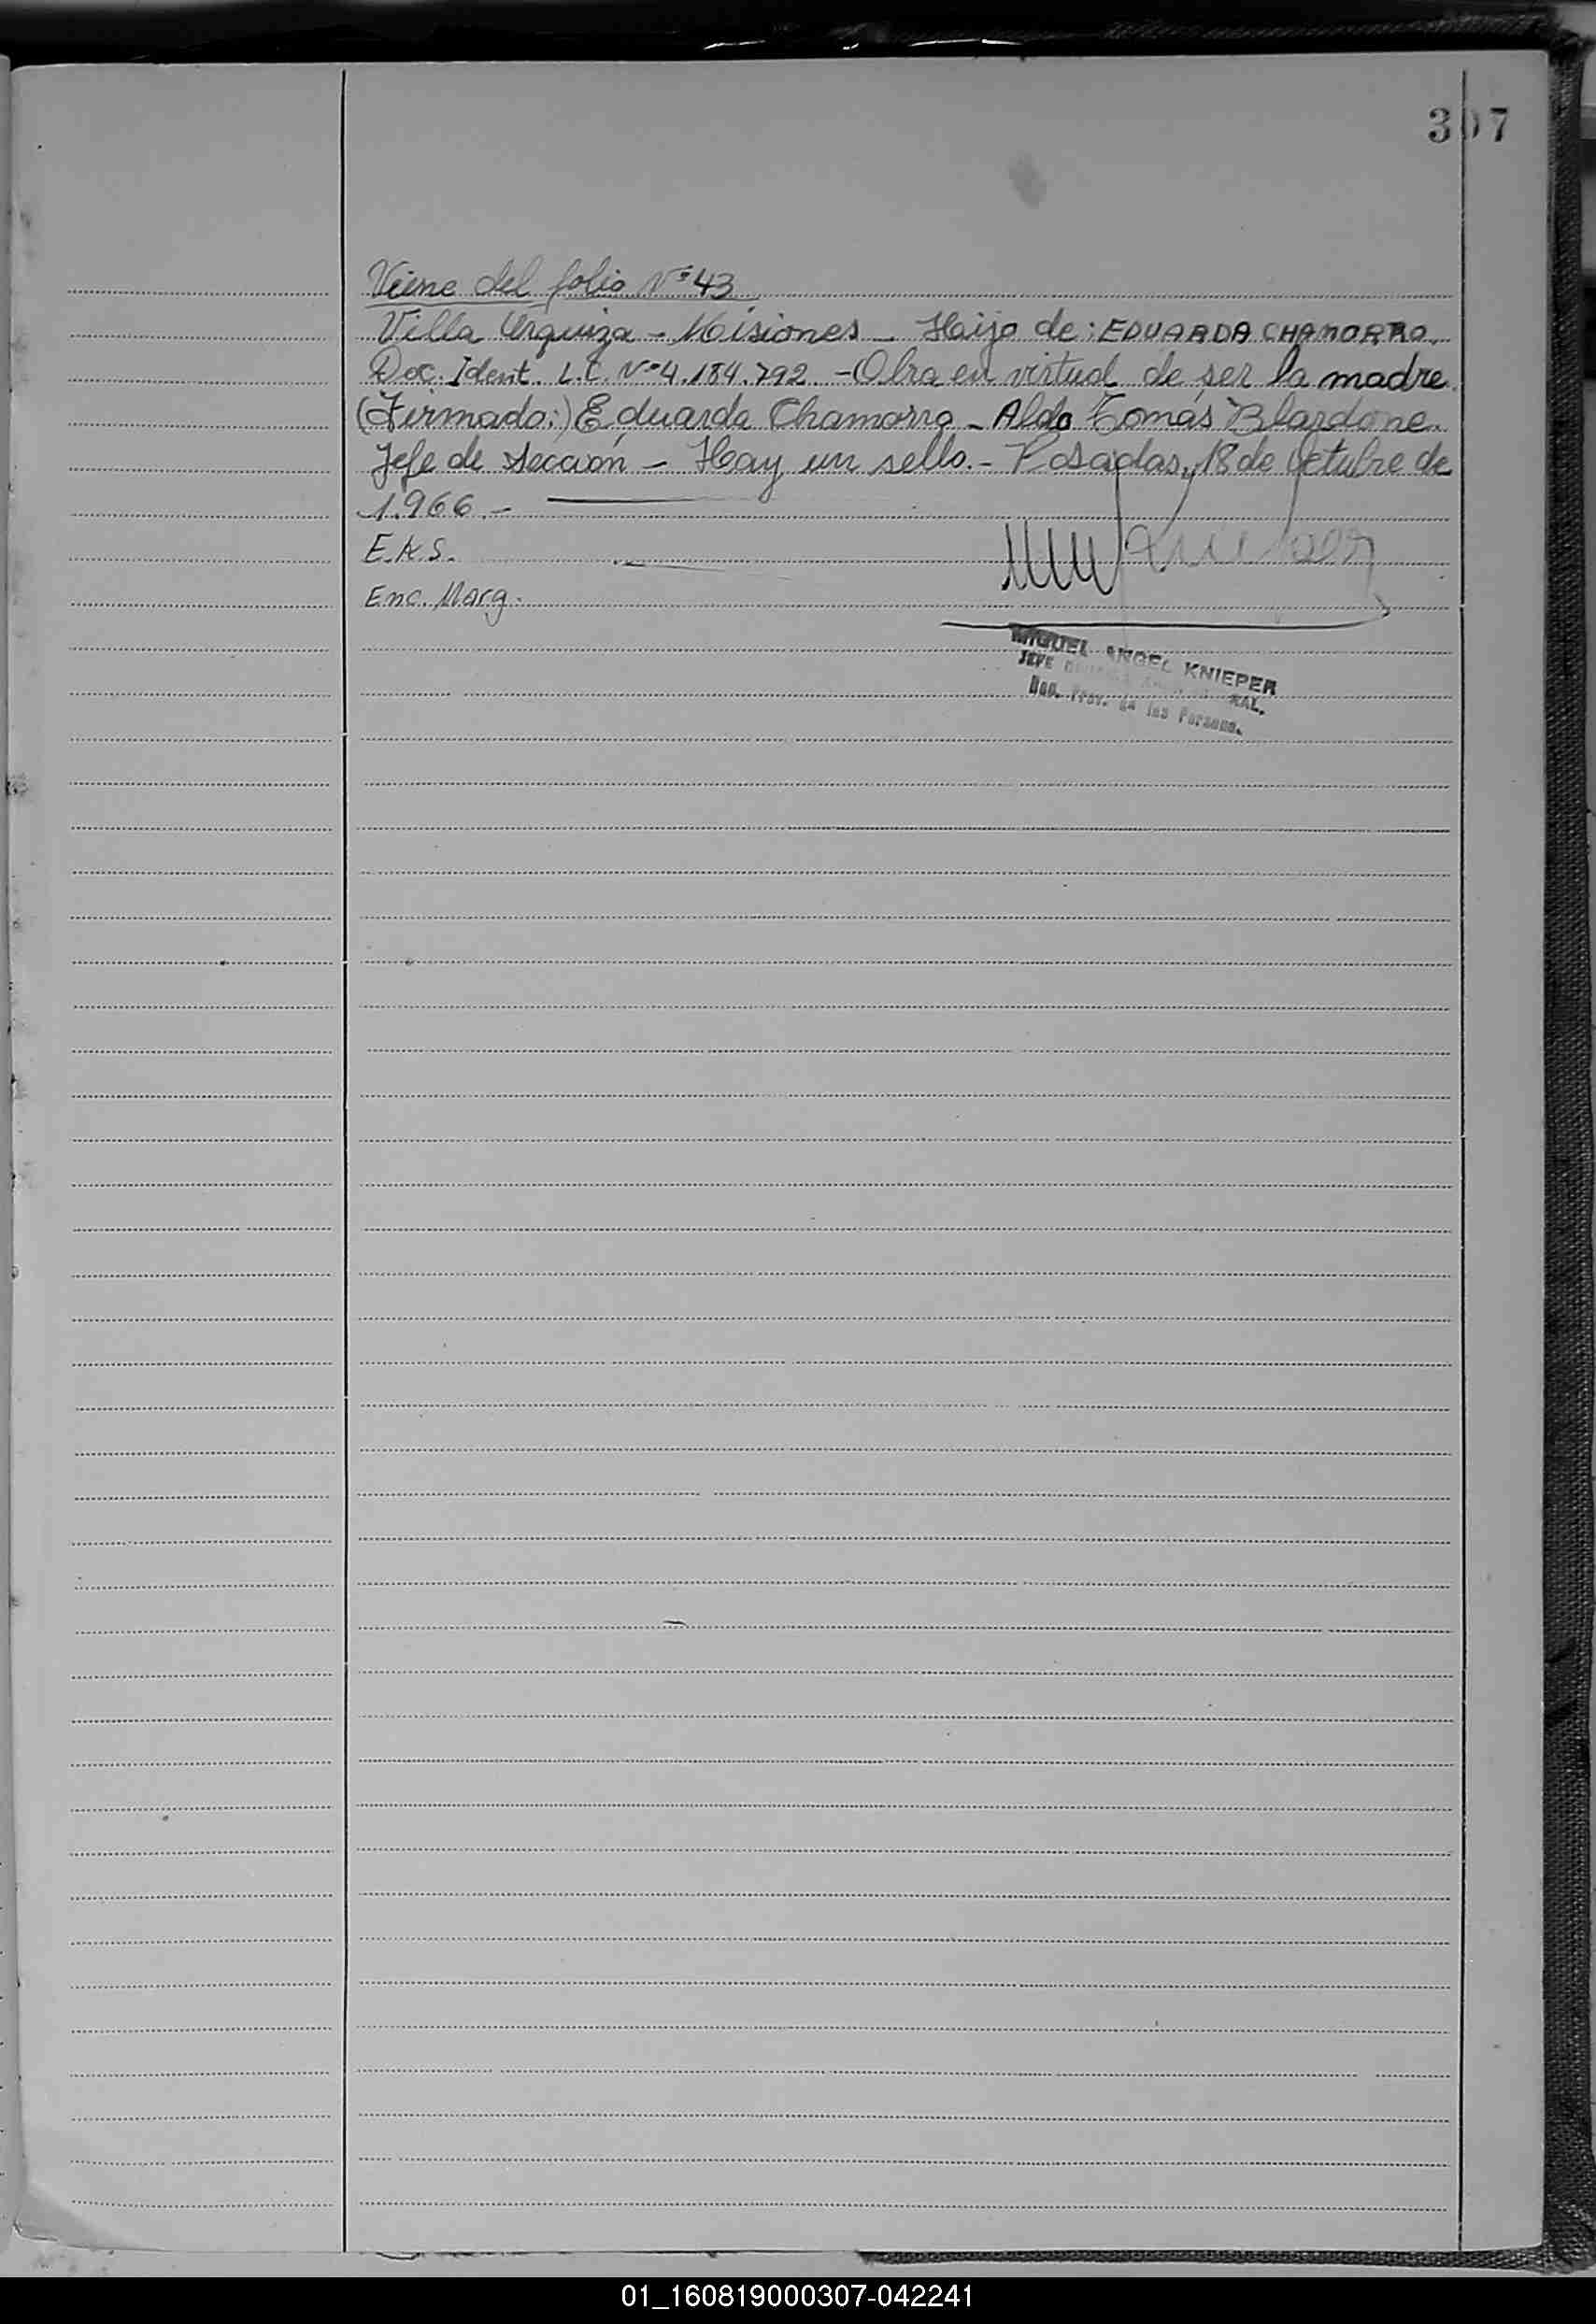 307
Viene del folio Nº 43
Villa Urquiza - Misiones - Hijo de: EDUARDA CHAMORRO.
Doc. Ident. L.C. Nº 4.184.792 - Obra en virtud de ser la madre.
(Firmado:) Eduarda Chamorro - Aldo Tomás Blardone.
Jefe de Sección - Hay un sello. - Posadas, 18 de Octubre de
1.966.-
E.A.S.
Enc. Marg.
MIGUEL ANGEL KNIEPER
JEFE
Prov. de las Persona.
01_160819000307-042241